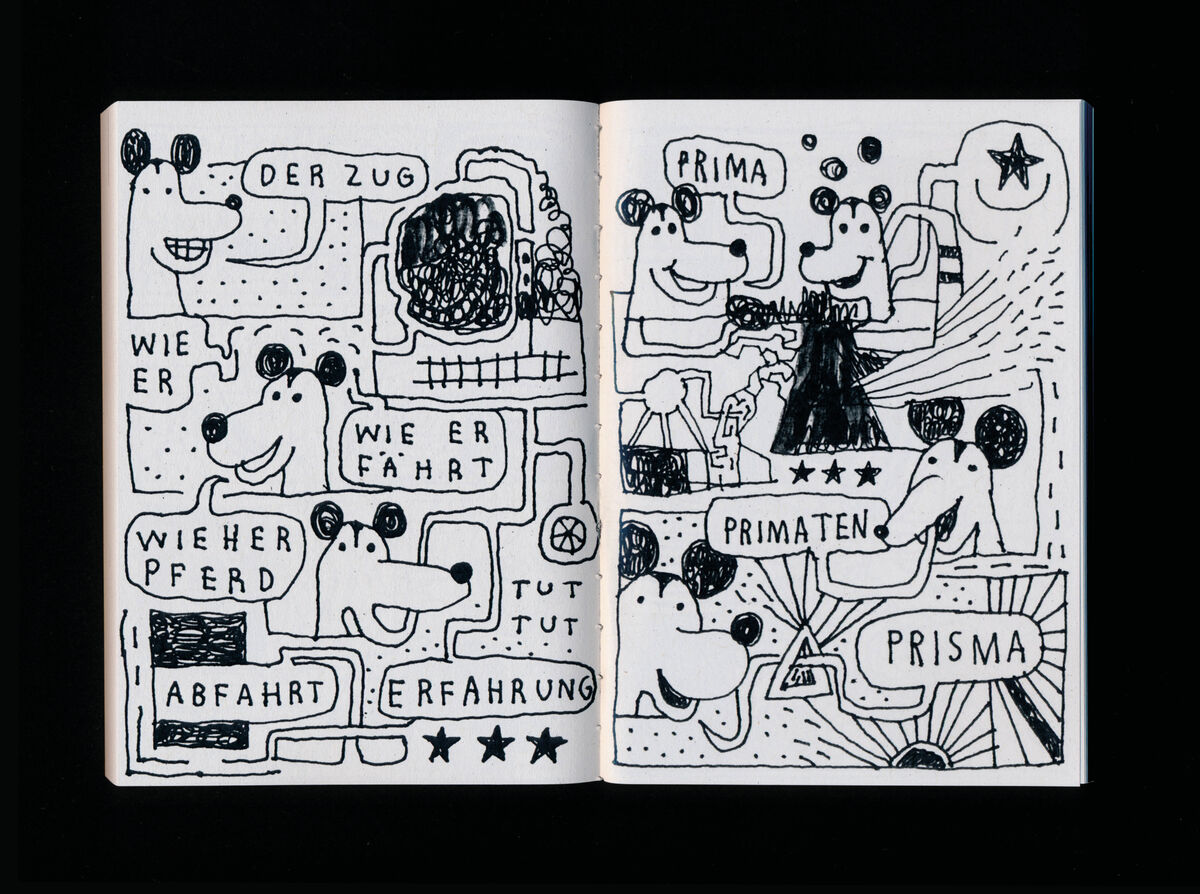 DER ZUG
WIE
ER
WIE ER
FÄHRT
WIEHER
PFERD
TUT
TUT
ABFAHRT
ERFAHRUNG
PRIMA
PRIMATEN
PRISMA